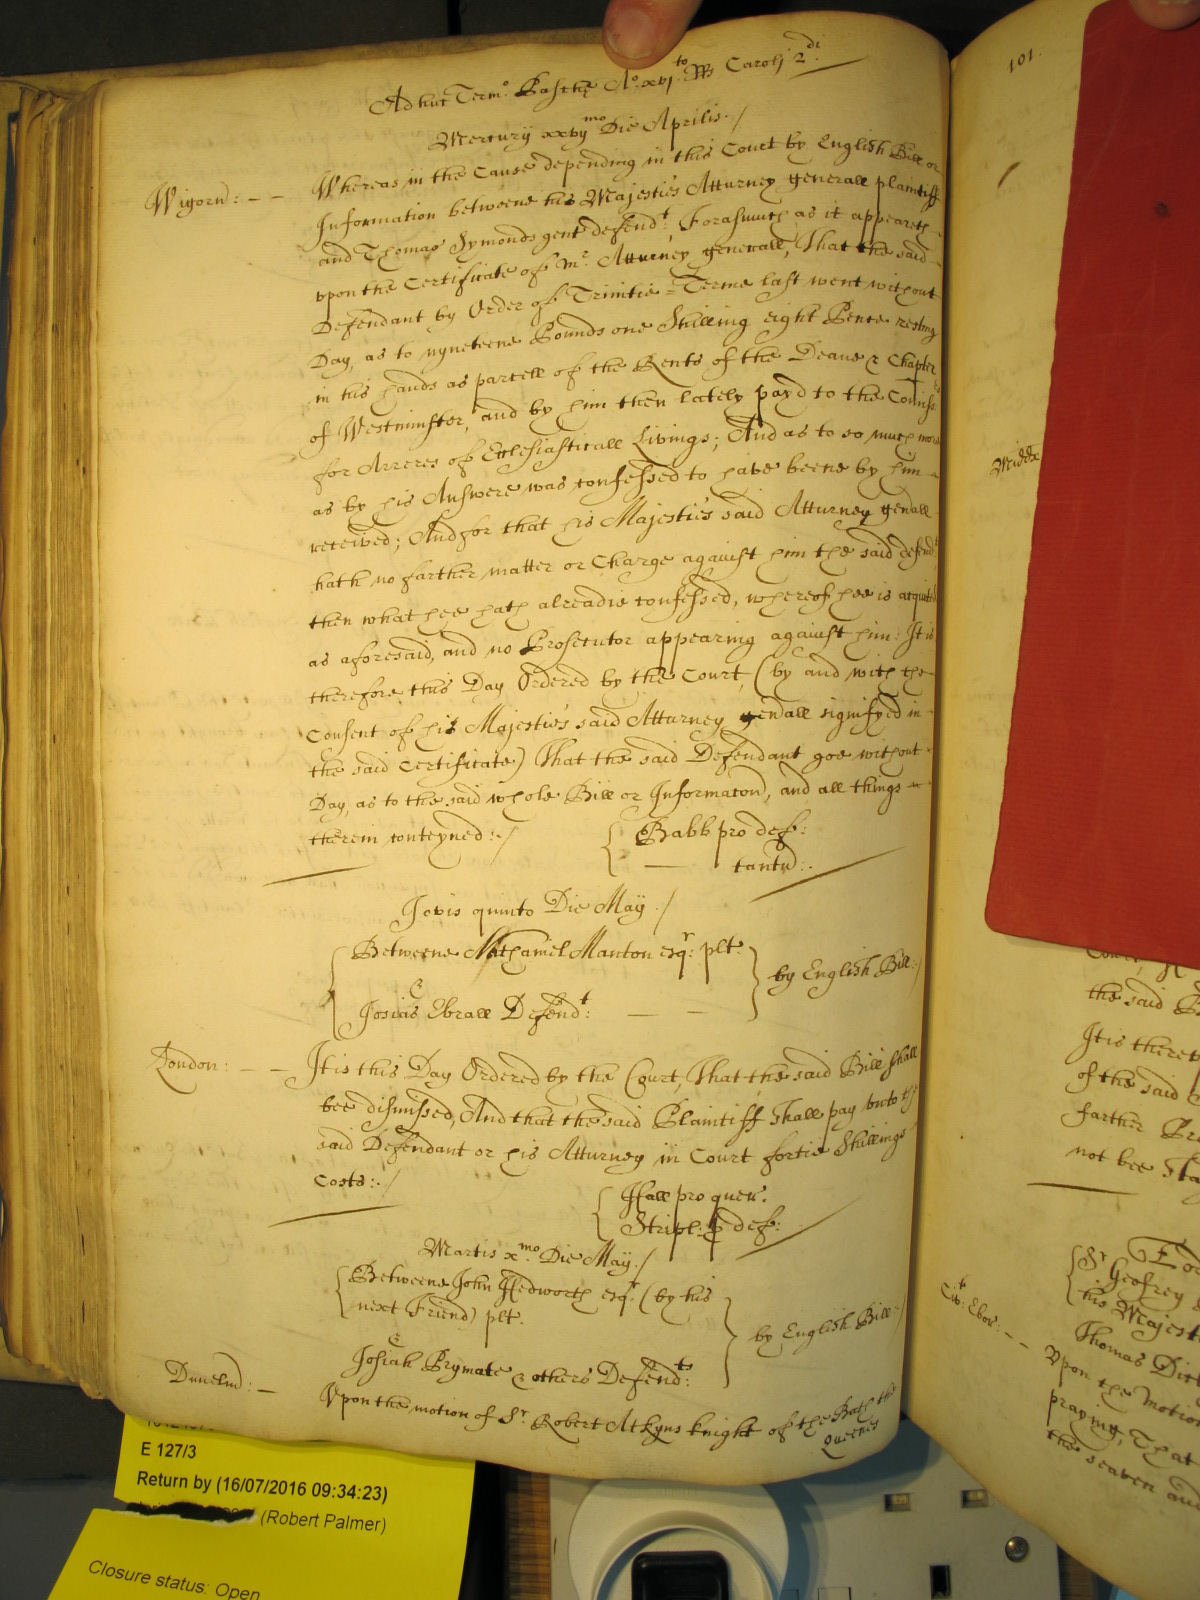 Adhuc Termo Pasche Ao xvjto RRs Caroli 2di
Mercurij xxvijmo Die Aprilis./
Wigorn: - - Whereas in the Cause depending in this Court by English Bill or
Information betweene his Majesties Atturney generall plaintiff
and Thomas Symonds gent defendt, Forasmuch as it appeareth
vpon the Certificate of mr. Atturney generall, That the said
Defendant by Order of Trinitie = Terme last went without
Day, as to nyneteene Pounds one Shilling eight Pence resting
in his hands as parcell of the Rents of the Deane & Chapter
of Westminster, and by him then lately payd to the Comissrs
for Arreres of Ecclesiasticall Livings; And as to so much more
as by his Answere was confessed to have beene by him
received; And for that his Majesties said Atturney genall
hath no farther matter or Charge against him the said defendt
then what hee hath alreadie confessed, whereof hee is acquited
as aforesaid, and no Prosecutor appearing against him: It is
therefore this Day Ordered by the Court, (by and with the
Consent of his Majesties said Atturney genall signifyed in
the said Certificate) That the said Defendant goe without
Day, as to the said whole Bill or Informacon, and all things
therein conteyned:./
Babb pro def:
tantu:.
Jovis quinto Die May./
Betweene Nathaniel Manton esqr: plt:
&
Josias Ebrall Defendt:
by English Bill:
London: - - It is this Day Ordered by the Court, That the said Bill shall
bee dismissed, And that the said Plaintiff shall pay vnto the
said Defendant or his Atturney in Court fortie Shillings
Costs:./
Hall pro quer:
Stripl: p def:
Martis xmo Die May./
Betweene John Hedworth esqr (by his
next Friend) plt.
&
Josiah Prymate & others Defendts:
by English Bill
Dunelm: - Vpon the motion of Sr. Robert Atkyns knight of the Bath the
Queenes
101.
Middx
the said
It is
of the said
farther
not bee
Sr Geofrey
his Majest
Thomas
Civt: Ebor: - -
Vpon the Motion
praying, That
the seaven and
E 127/3
Return by (16/07/2016 09:34:23)
(Robert Palmer)
Closure status: Open